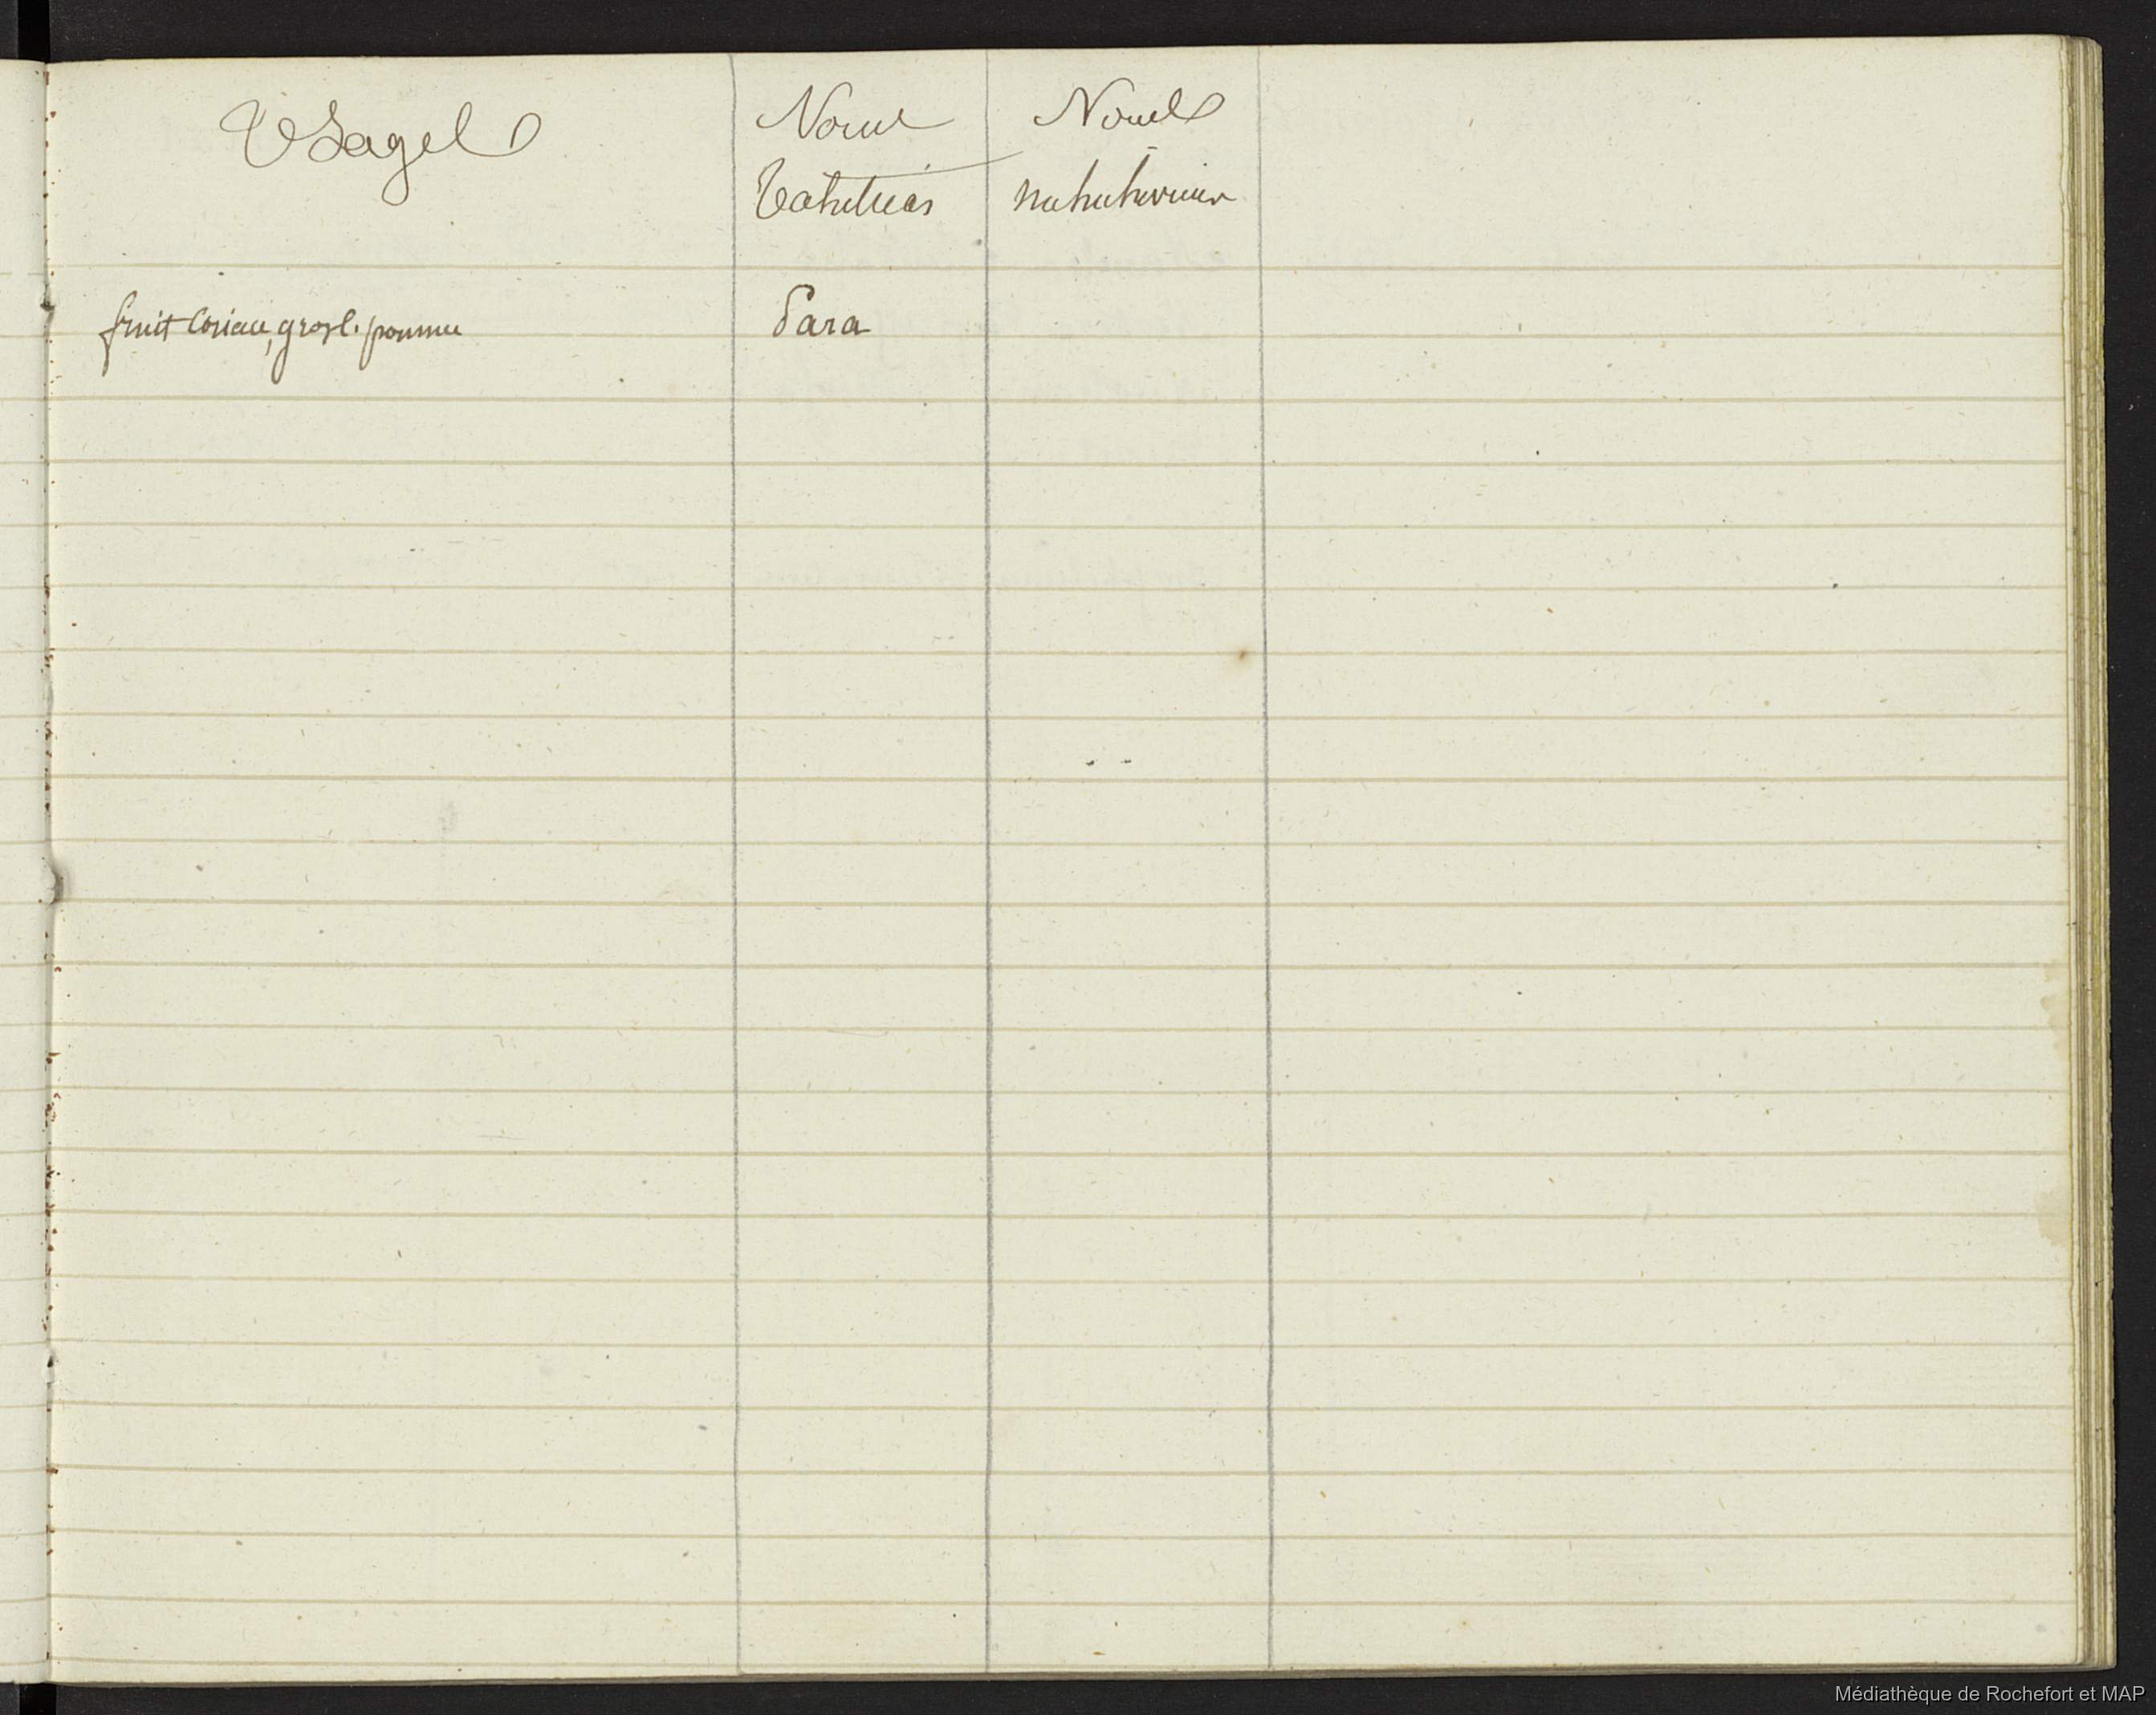 Usages
Noms
Tahitiens
Noms
nukuhiviens
fruit coriace, gross. pomme
Para
Médiathèque de Rochefort et MAP